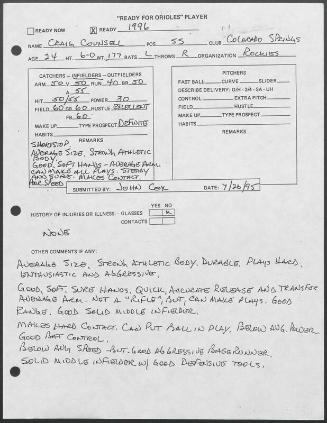 "READY FOR ORIOLES" PLAYER
READY NOW X READY 1996
NAME CRAIG COUNSELL POS SS CLUB COLORADO SPRINGS
AGE 24 HT 6-0 WT 177 BATS L THROWS R ORGANIZATION ROCKIES
CATCHERS - INFIELDERS - OUTFIELDERS
ARM 50 50 RUN 40 BR 50
A 55
HIT 50/55 POWER 30
FIELD 60 60 HUSTLE EXCELLENT
PR 60
MAKE UP TYPE PROSPECT DEFINITE
SHORTSTOP
AVERAGE SIZE, STRONG, ATHLETIC
BODY
GOOD, SOFT HANDS - AVERAGE ARM
CAN MAKE ALL PLAYS. STEADY
AND SURE - MAKES CONTACT.
FAIR SPEED
PITCHERS
FAST BALL CURVE SLIDER
DESCRIBE DELIVERY: O/H - 3/4 - SA - UH
CONTROL EXTRA PITCH
FIELD HUSTLE
MAKE UP TYPE PROSPECT
SUBMITTED BY: JOHN COX DATE: 7/20/95
YES NO
HISTORY OF INJURIES OR ILLNESS - GLASSES X
CONTACTS
NONE
OTHER COMMENTS IF ANY:
AVERAGE SIZE, STRONG ATHLETIC BODY. DURABLE, PLAYS HARD,
ENTHUSIASTIC AND AGGRESSIVE.
GOOD, SOFT, SURE HANDS, QUICK, ACCURATE RELEASE AND TRANSFER
AVERAGE ARM. NOT A "RIFLE", BUT, CAN MAKE PLAYS. GOOD
RANGE. GOOD SOLID MIDDLE INFIELDER.
MAKES HARD CONTACT. CAN PUT BALL IN PLAY, BELOW AVG. POWER
GOOD BAT CONTROL.
BELOW AVG SPEED - BUT GOOD AGGRESSIVE BASERUNNER
SOLID MIDDLE INFIELDER W/ GOOD DEFENSIVE TOOLS.